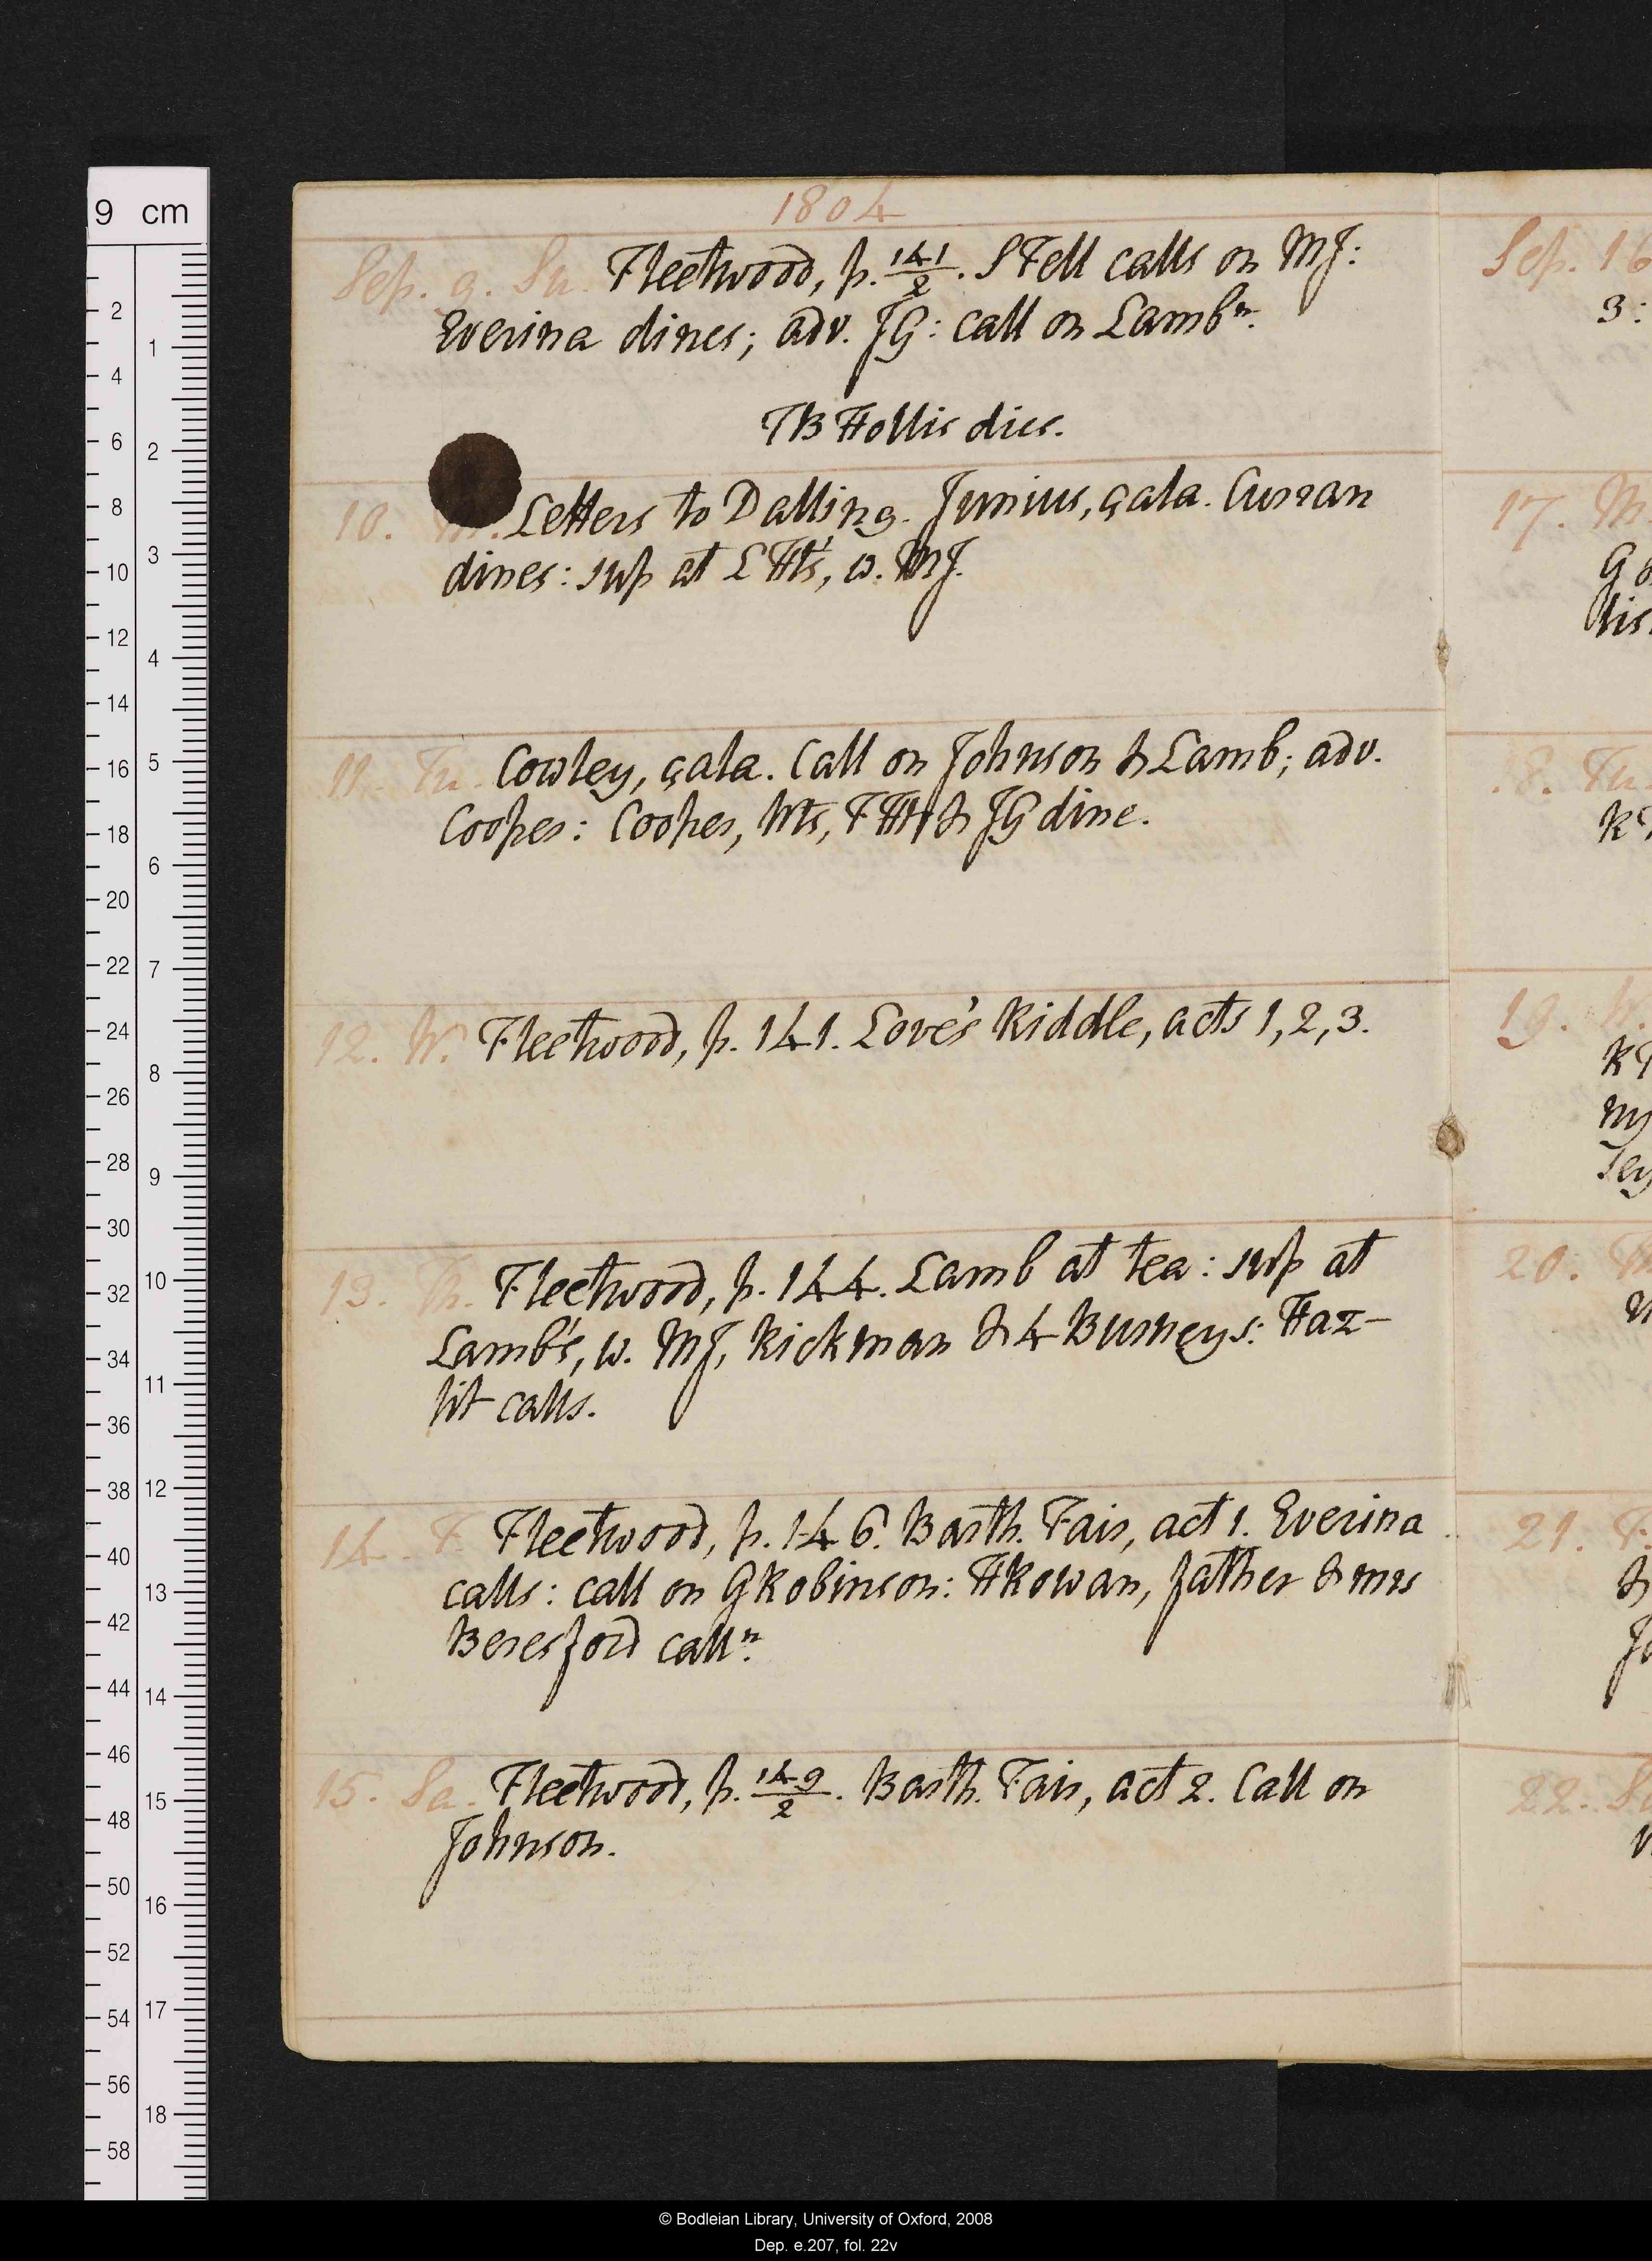 1804
Sep. 9. Su. Fleetwood, p. 141/2. S Fell calls on MJ:
Everina dines; adv. JG: call on Lamb n.
TB Hollis dies.
10. M. Letters to Dalling. Junius, çala. Curran
dines: sup at L Ht's, w. MJ.
11. Tu. Cowley, çala. Call on Johnson & Lamb; adv.
Cooper: Cooper, Wts, F & JG dine.
12. W. Fleetwood, p. 141. Love's Riddle, acts 1, 2, 3.
13. Th. Fleetwood, p. 144. Lamb at tea: sup at
Lamb's, w. MJ, Rickman & 4 Burneys: Haz-
lit calls.
14. F. Fleetwood, p. 146. Barth. Fair, act 1. Everina
calls: call on G Robinson: H Rowan, father & mrs
Beresford call n.
15. Sa. Fleetwood, p. 149/2. Barth. Fair, act 2. Call on
Johnson.
Sep. 16
3:
17. M
G
lis
18. Tu.
19. W.
20. Th
21. F.
&
22. Sa
9 cm
2 4 6 8 10 12 14 16 18 20 22 24 26 28 30 32 34 36 38 40 42 44 46 48 50 52 54 56 58
1 2 3 4 5 6 7 8 9 10 11 12 13 14 15 16 17 18
© Bodleian Library, University of Oxford, 2008
Dep. e.207, fol. 22v